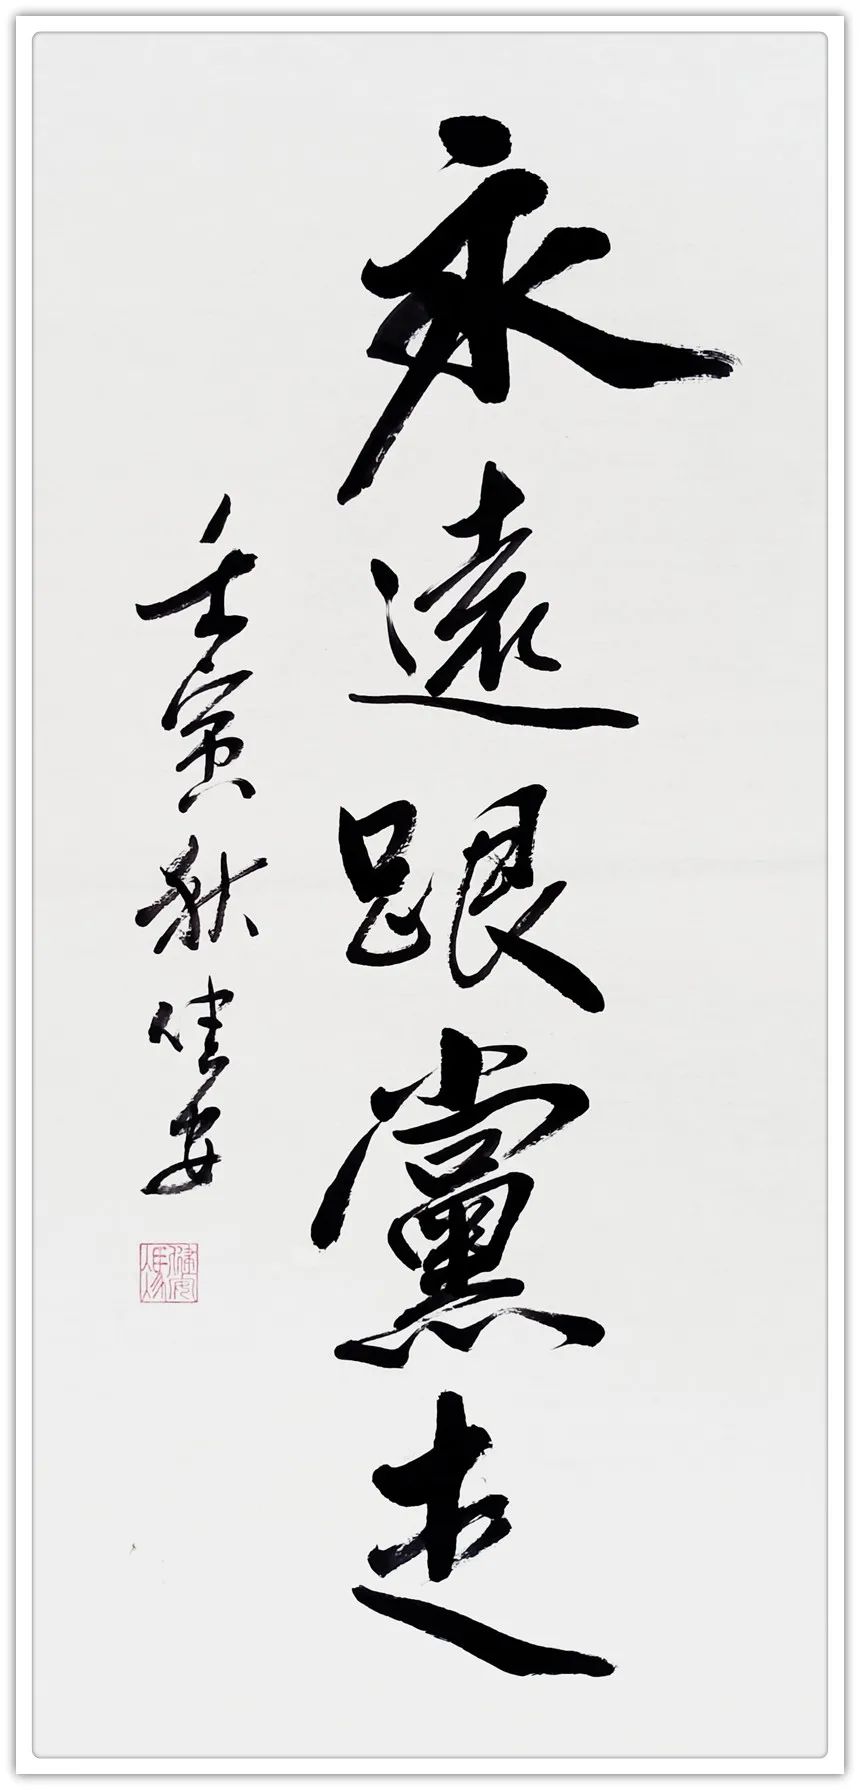 永遠跟黨走
壬寅秋安